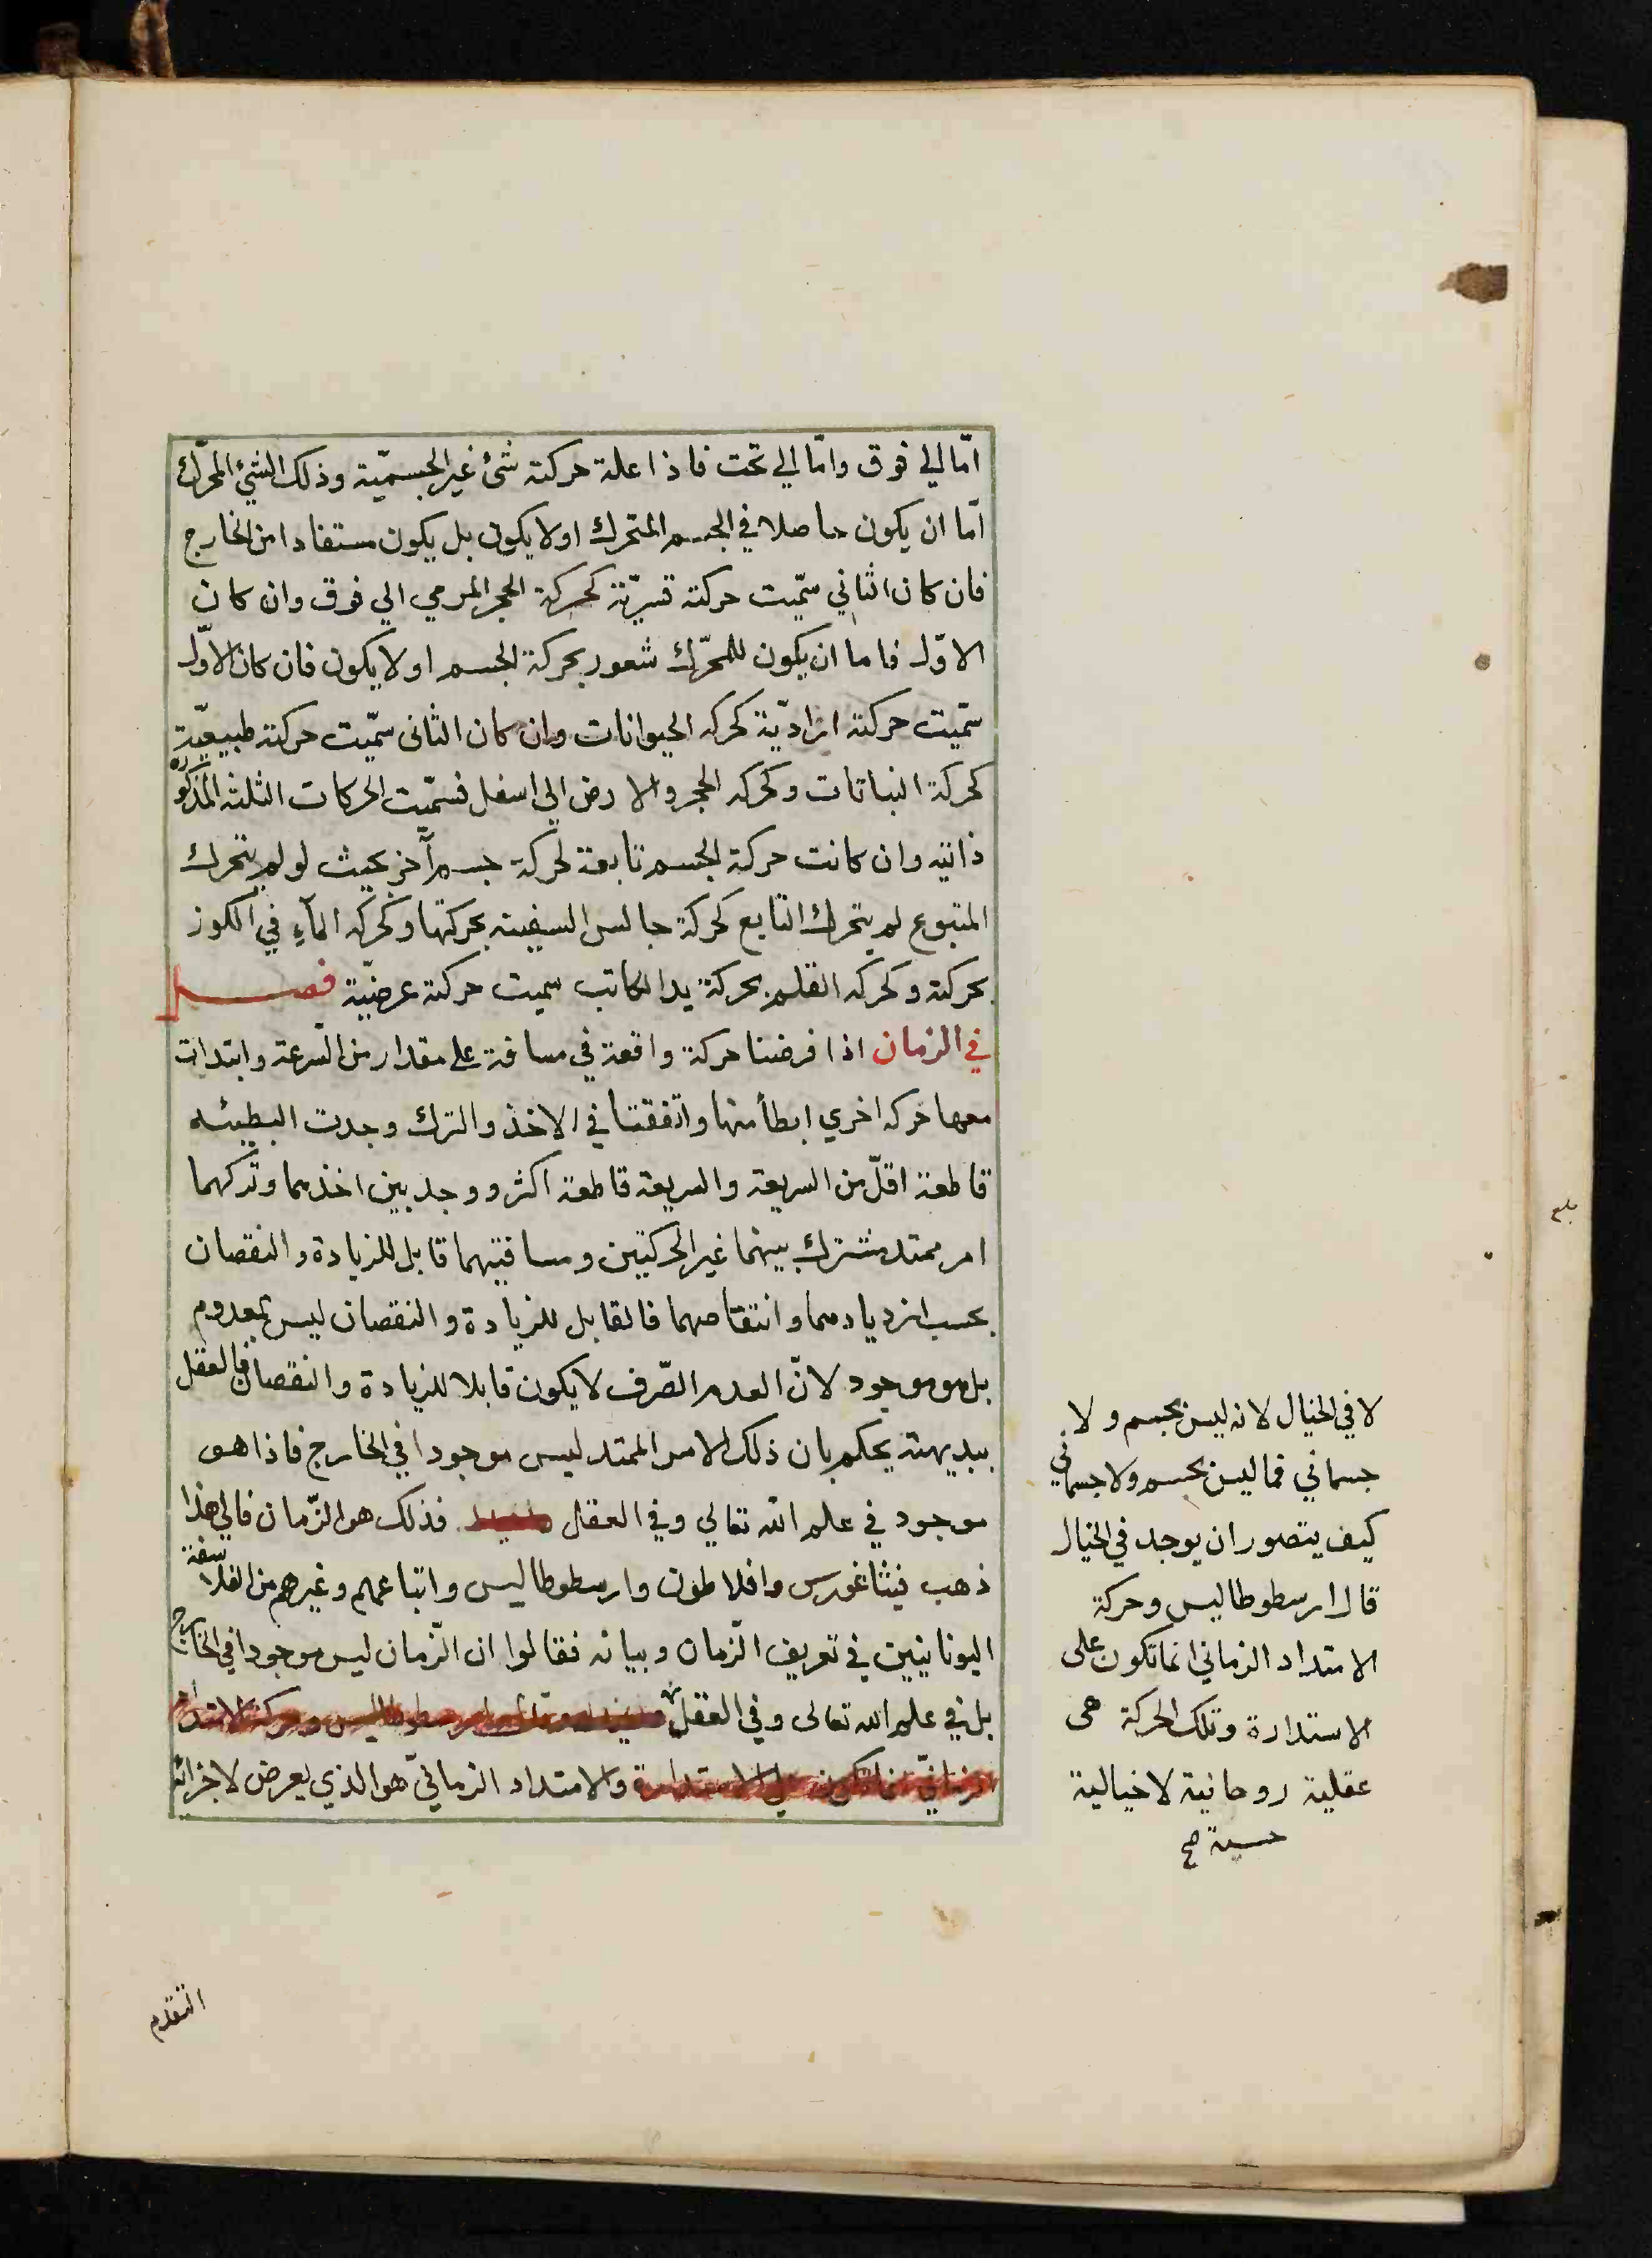 امّا الي فوق وامّا الي تحت فاذا علة حركته شئ غير الجسميّة وذلك الشئ المحرّك
امّا ان يكون حاصلا في الجسم المتحرك اولا يكون بل يكون مستفادا من الخارج
فان كان الثاني سمّيت حركته قسريّة كحركة الحجر المرمي الي فوق وان كان
الاوّل فاما ان يكون للمحرّك شعور بحركة الجسم اولا يكون فان كان الاوّل
سمّيت حركته اراديّة كحركه الحيوانات وان كان الثانى سمّيت حركته طبيعيّة
كحركة النباتات وكحركه الحجر والارض الي اسفل فسمّيت الحركات الثلثه المذكوره
ذاتيه وان كانت حركة الجسم تابعة لحركة جسم آخر بحيث لو لم يتحرك
المتبوع لم يتحرك التابع كحركة جالس السفينه بحركتها وكحركه المآء في الكوز
بحركته وكحركه القلم بحركة يد الكاتب سميت حركته عرضيّة فصل
في الزمان اذا فرضنا حركة واقعة في مسافة علي مقدار من السّرعة وابتدات
معها حركه اخري ابطأ منها واتفقتا في الاخذ والترك وجدت البطيئه
قاطعة اقلّ من السريعة والسريعة قاطعة اكثر ووجد بين اخذهما وتركهما
امر ممتد مشترك بينهما غير الحركتين ومسافتيهما قابل للزيادة والنقصان
بحسب ازديادهما وانتقاصهما فالقابل للزيادة والنقصان ليس بمعدوم
بل هو موجود لانّ العدم الصّرف لا يكون قابلا للزيادة والنقصان فالعقل
ببديهته يحكم بان ذلك الامر الممتد ليس موجودا في الخارج فاذا هو
موجود في علم الله تعالي وفي العقل فذلك هو الزّمان فالي هذا
ذهب فيثاغورس وافلاطون وارسطوطاليس واتباعهم وغيرهم من الفلاسفة
اليونانيين في تعريف الزّمان وبيانه فقالوا ان الزّمان ليس موجودا في الخارج
بل في علم الله تعالى وفي العقل وقال ارسطوطاليس وحركة الامتداد
الزمانيّ انما تكون علي الاستدارة والامتداد الزمانيّ هو الذي يعرض لاجزائه
لا في الخيال لانه ليس بجسم ولا
جسماني فما ليس بجسم ولا جسماني
كيف يتصور ان يوجد في الخيال
قال ارسطوطاليس وحركة
الامتداد الزماني انما تكون على
الاستدارة وتلك الحركة هى
عقلية روحانية لا خيالية
حسية صح
التقدم